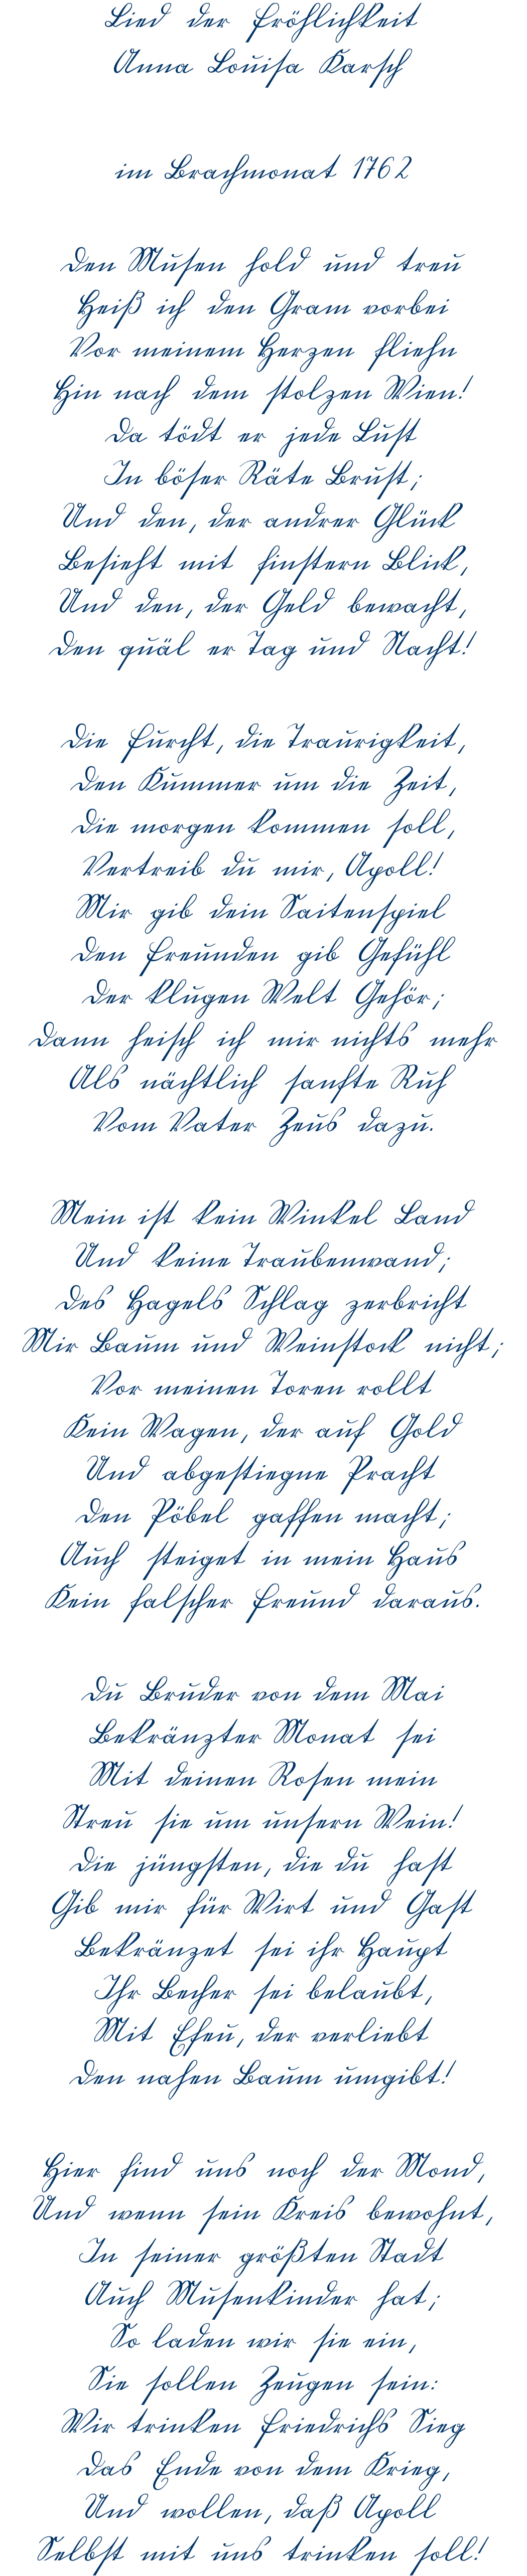 Lied der Fröhlichkeit
Anna Louisa Karsch
im Brachmonat 1762
Den Musen hold und treu
Heiß ich den Gram vorbei
Vor meinem Herzen fliehn
Hin nach dem stolzen Wien!
Da tödt er jede Lust
In böser Räte Brust;
Und den, der andrer Glück
Besieht mit finstern Blick,
Und den, der Geld bewacht,
Den quäl er Tag und Nacht!
Die Furcht, die Traurigkeit,
Den Kummer um die Zeit,
Die morgen kommen soll,
Vertreib du mir, Apoll!
Mir gib dein Saitenspiel
Den Freunden gib Gefühl
Der klugen Welt Gehör;
Dann heisch ich mir nichts mehr
Als nächtlich sanfte Ruh
Vom Vater Zeus dazu.
Mein ist kein Winkel Land
Und keine Traubenwand;
Des Hagels Schlag zerbricht
Mir Baum und Weinstock nicht;
Vor meinen Toren rollt
Kein Wagen, der auf Gold
Und abgestiegne Pracht
Den Pöbel gaffen macht;
Auch steiget in mein Haus
Kein falscher Freund daraus.
Du Bruder von dem Mai
Bekränzter Monat sei
Mit deinen Rosen mein
Streu sie um unsern Wein!
Die jüngsten, die du hast
Gib mir für Wirt und Gast
Bekränzet sei ihr Haupt
Ihr Becher sei belaubt,
Mit Efeu, der verliebt
Den nahen Baum umgibt!
Hier find uns noch der Mond,
Und wenn sein Kreis bewohnt,
In seiner größten Stadt
Auch Musenkinder hat;
So laden wir sie ein,
Sie sollen Zeugen sein:
Wir trinken Friedrichs Sieg
Das Ende von dem Krieg,
Und wollen, daß Apoll
Selbst mit uns trinken soll!